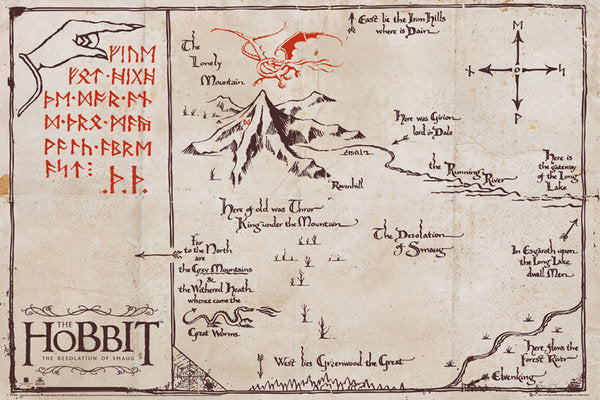 ᚠᛁᚢᛖ
ᚠᚩᛏ·ᚻᛁᚷᚻ
ᚦᛖ·ᛞᚩᚱ·ᚪᚾ
ᛞ·ᚦᚱᛟ·ᛗᚪᚣ
ᚹᚪᛚᚳ·ᚪᛒᚱᛖ
ᚪᛋᛏ⋮
·ᚦ·ᚦ·
The
Lonely
Mountain
East lie the Iron Hills
where is Dain
Here was Girion
lord in Dale
the Running River
Here is
the gateway
of the Long
Lake
Ravenhill
Here of old was Thror
King under the Mountain
The Desolation
of Smaug
In Esgaroth upon
the Long Lake
dwell Men
Far
to the North
are
the Grey Mountains
&
the Withered Heath
whence came the
Great Worms
West lies Greenwood the Great
Here flows the
Forest River
Elvenking
THE
HOBBIT
THE DESOLATION OF SMAUG